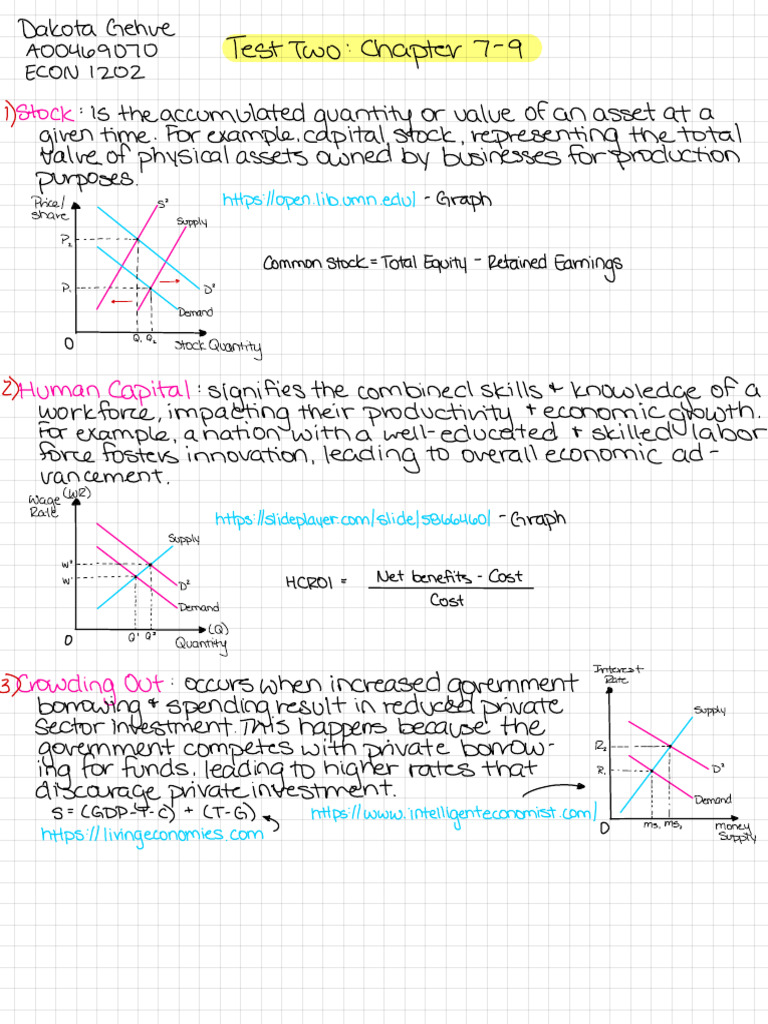 Dakota Gehue
A00469070
ECON 1202
Test Two: Chapter 7-9
1) Stock: Is the accumulated quantity or value of an asset at a
given time. For example, capital stock, representing the total
value of physical assets owned by businesses for production
purposes.
https://open.lib.umn.edu/ - Graph
Price/
share
S²
Supply
P₂
P₁
D²
Demand
0
Q₁ Q₂
Stock Quantity
Common stock = Total Equity - Retained Earnings
2) Human Capital: signifies the combined skills + knowledge of a
workforce, impacting their productivity + economic growth.
For example, a nation with a well-educated + skilled labor
force fosters innovation, leading to overall economic ad-
vancement.
https://slideplayer.com/slide/5866460/ - Graph
Wage (WR)
Rate
Supply
W²
W'
D²
Demand
0
Q¹ Q²
(Q)
Quantity
HCROI = Net benefits - Cost
Cost
3) Crowding Out: occurs when increased government
borrowing + spending result in reduced private
Sector Investment. This happens because the
government competes with private borrow-
ing for funds, leading to higher rates that
discourage private investment.
S = (GDP-T-C) + (T-G)
https://livingeconomies.com
https://www.intelligenteconomist.com/
Interest
Rate
Supply
R₂
R₁
D²
Demand
0
MS₁ MS₁
money
Supply